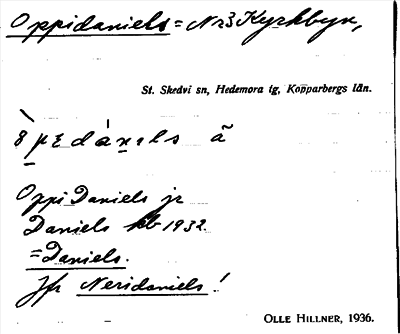 Oppidaniels = Nr3 Kyrkbyn,
St. Skedvi sn, Hedemora tg, Kopparbergs län.
Oppi Daniels jr
Daniels kb 1932.
= Daniels.
Jfr Neridaniels!
OLLE HILLNER, 1936.